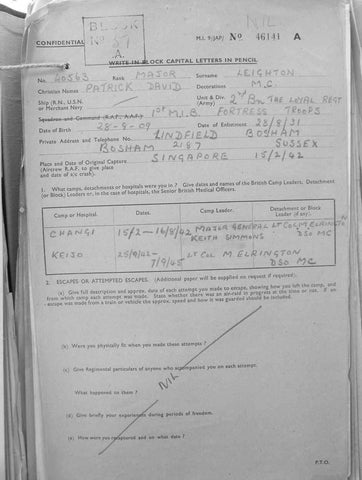 NIL
BLOCK
Nº 47
A.
CONFIDENTIAL
M.I. 9/JAP/ Nº 46141 A
WRITE IN BLOCK CAPITAL LETTERS IN PENCIL
No. 40563 Rank MAJOR Surname LEIGHTON
Christian Names PATRICK DAVID Decorations M.C.
Ship (R.N., U.S.N. or Merchant Navy) Unit & Div. (Army) 2nd Bn THE LOYAL REGT
Squadron and Command (R.A.F., A.A.F.) 1st M.I.B FORTRESS TROOPS
Date of Birth 28-8-09 Date of Enlistment 28/8/31
Private Address and Telephone No. LINDFIELD BOSHAM
BOSHAM 2187 SUSSEX
Place and Date of Original Capture SINGAPORE 15/2/42
(Aircrew R.A.F. to give place
and date of a/c crash).
1. What camps, detachments or hospitals were you in ? Give dates and names of the British Camp Leaders, Detachment
(or Block) Leaders or, in the case of hospitals, the Senior British Medical Officers.
Camp or Hospital. Dates. Camp Leader. Detachment or Block Leader (if any).
CHANGI 15/2-16/8/42 MAJOR GENERAL KEITH SIMMONS LT COL M. ELRINGTON DSO MC
KEIJO 25/9/42- 7/9/45 LT COL M. ELRINGTON DSO MC
2. ESCAPES OR ATTEMPTED ESCAPES. (Additional paper will be supplied no request if required).
(a) Give full description and approx. date of each attempt you made to escape, showing how you left the camp, and
from which camp each attempt was made. State whether there was an air-raid in progress at the time or not. If an
escape was made from a train or vehicle the approx. speed and how it was guarded should be included.
(b) Were you physically fit when you made these attempts ?
(c) Give Regimental Particulars of anyone who accompanied you on each attempt.
NIL
What happened to them ?
(d) Give briefly your experiences during periods of freedom.
(e) How were you recaptured and on what date ?
P.T.O.